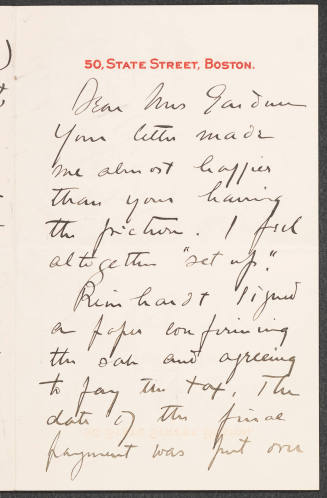 50, STATE STREET, BOSTON.
Dear Mrs Gardner
Your letter made
me almost happier
than your having
the picture. I feel
altogether "set up."
Reinhardt signed
a paper confirming
the sale and agreeing
to pay the tax. The
date of the final
payment was put over